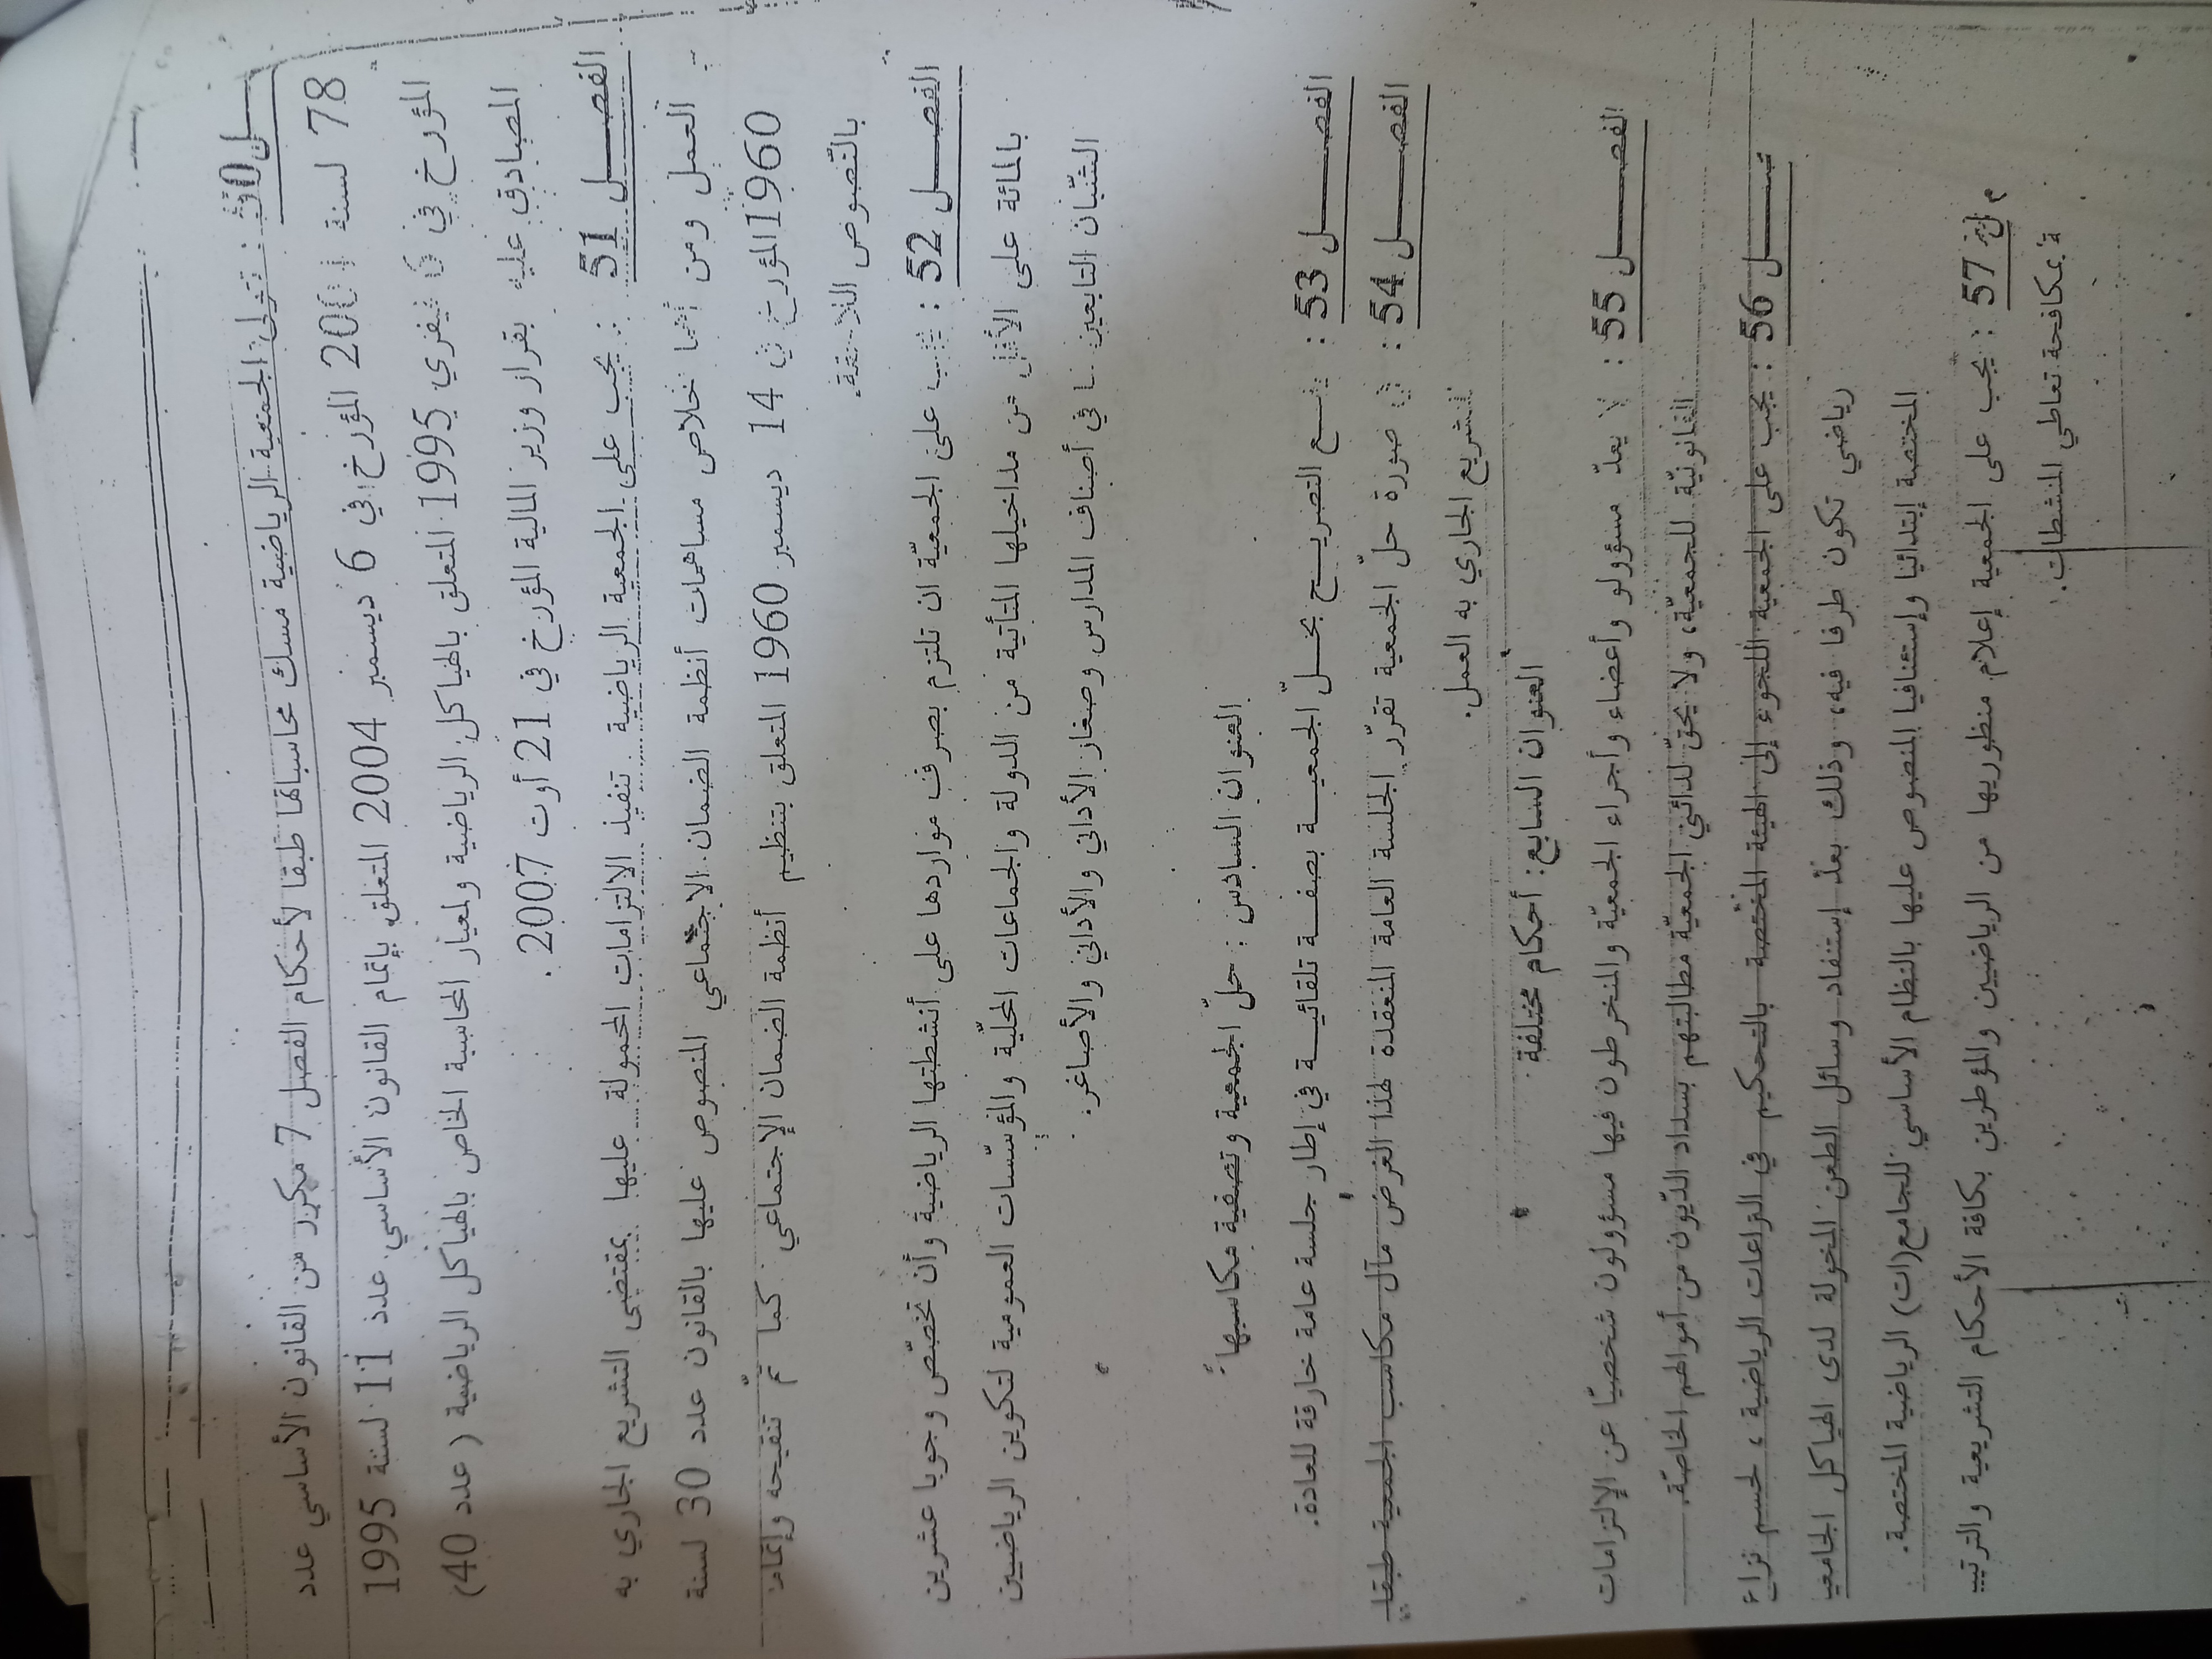 ل 50 : تتولى الجمعية الرياضية مسك محاسباتها طبقا لأحكام الفصل 7 مكرر من القانون الأساسي عدد
78 لسنة 2004 المؤرخ في 6 ديسمبر 2004 المتعلق بإتمام القانون الأساسي عدد 11 لسنة 1995
المؤرخ في 6 فيفري 1995 المتعلق بالهياكل الرياضية ولمعيار المحاسبية الخاص بالهياكل الرياضية (عدد 40)
المصادق عليه بقرار وزير المالية المؤرخ في 21 أوت 2007.
الفصـــل 51 : يجب على الجمعية الرياضية تنفيذ الالتزامات المحمولة عليها بمقتضى التشريع الجاري به
العمل ومن أهمها خلاص مساهمات أنظمة الضمان الاجتماعي المنصوص عليها بالقانون عدد 30 لسنة
1960 المؤرخ في 14 ديسمبر 1960 المتعلق بتنظيم أنظمة الضمان الإجتماعي كما تمّ تنقيحه وإتمامه
بالنّصوص اللاحقة.
الفصـــل 52 : يجب على الجمعيّة ان تلتزم بصرف مواردها على أنشطتها الرياضية وأن تخصّص وجوبا عشرين
بالمائة على الأقل من مداخيلها المتأتية من الدولة والجماعات المحلّية والمؤسّسات العمومية لتكوين الرياضيين
الشبّان التابعين لها في أصناف المدارس وصغار الأداني والأداني والأصاغر.
العنوان السادس : حلّ الجمعية وتصفية مكاسبها :
الفصـــل 53 : يقـع التصريـح بحـلّ الجمعيـة بصفـة تلقائيـة في إطار جلسة عامة خارقة للعادة.
الفصـــل 54 : في صورة حلّ الجمعية تقرّر الجلسة العامة المنعقدة لهذا الغرض مآل مكاسب الجمعية طبقا
للتشريع الجاري به العمل.
العنوان السابع : أحكام مختلفة
الفصـــل 55 : لا يعدّ مسؤولو وأعضاء وأجراء الجمعيّة والمنخرطون فيها مسؤولون شخصيّا عن الإلتزامات
القانونيّة للجمعيّة، ولا يحقّ لدائني الجمعيّة مطالبتهم بسداد الدّيون من أموالهم الخاصّة.
ـــل 56 : يجب على الجمعية اللجوء إلى الهيئة المختصة بالتحكيم في النزاعات الرياضية ، لحسم نزاع
رياضي تكون طرفا فيه، وذلك بعد إستنفاد وسائل الطعن المخولة لدى الهياكل الجامعيـ
المختصة إبتدائيا وإستئنافيا المنصوص عليها بالنظام الأساسي للجامعـ(ات) الرياضية المختصة.
57 : يجب على الجمعية إعلام منظوريها من الرياضيين والمؤطرين بكافة الأحكام التشريعية والترتيـ
ة بمكافحة تعاطي المنشطات.